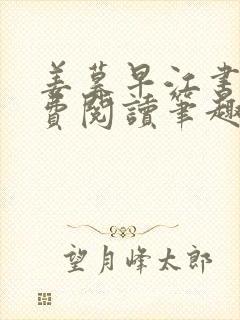 姜蓁早江書
費閱讀筆趣
望月峰太郎